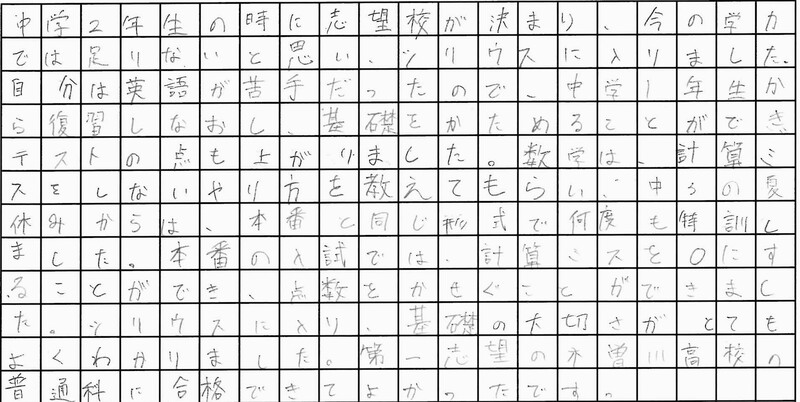 中学2年生の時に志望校が決まり、今の学力
では足りないと思い、シリウスに入りました。
自分は英語が苦手だったので、中学1年生か
ら復習しなおし、基礎をかためることができ
テストの点も上がりました。数学は、計算ミ
スをしないやり方を教えてもらい、中3の夏
休みからは、本番と同じ形式で何度も特訓し
ました。本番の入試では、計算ミスを0にす
ることができ、点数をかせぐことができまし
た。シリウスに入り、基礎の大切さがとても
よくわかりました。第一志望の木曽川高校の
普通科に合格できてよかったです。